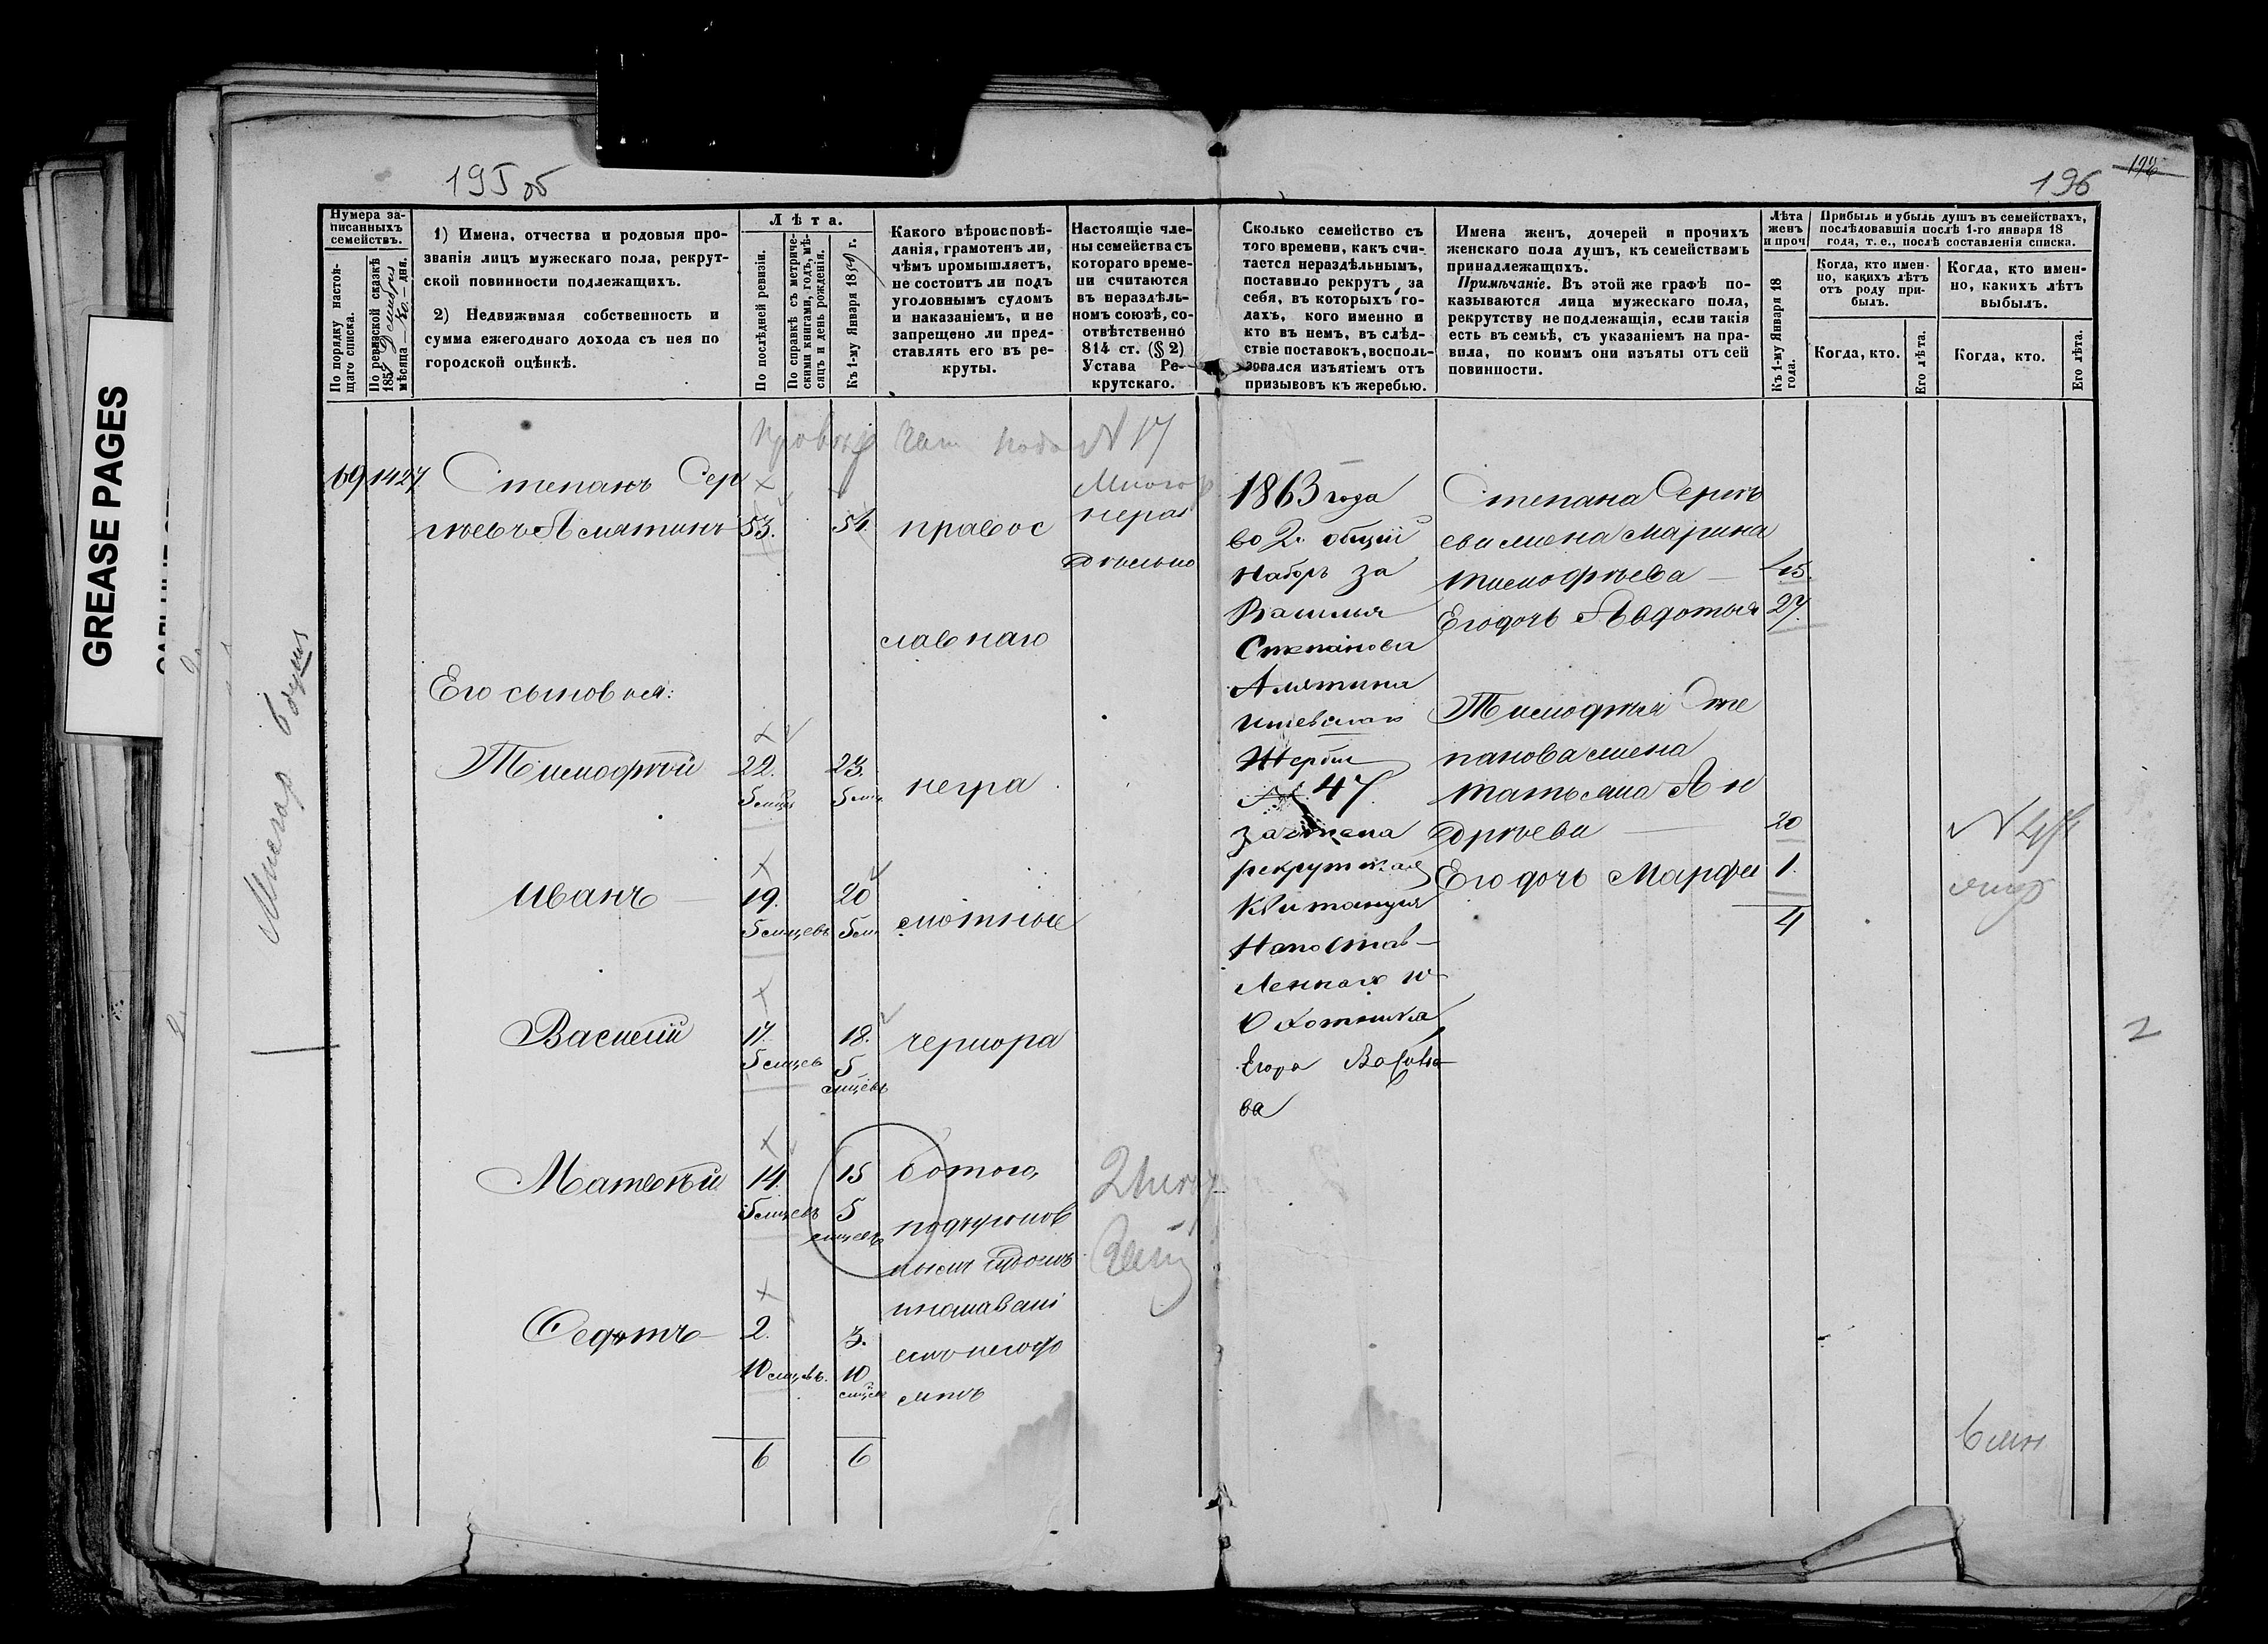 195 об
196
GREASE PAGES
Нумера записанныхъ семействъ.
По порядку настоящаго списка.
По ревизской сказкѣ 185 мѣсяца дня.
1) Имена, отчества и родовыя прозванія лицъ мужескаго пола, рекрутской повинности подлежащихъ.
2) Недвижимая собственность и сумма ежегоднаго дохода съ нея по городской оцѣнкѣ.
Лѣта.
По послѣдней ревизіи.
По справкѣ съ метрическими книгами, годъ, мѣсяцъ и день рожденія.
Къ 1-му Января 18 г.
Какого вѣроисповѣданія, грамотенъ ли, чѣмъ промышляетъ, не состоитъ ли подъ уголовнымъ судомъ и наказаніемъ, и не запрещено ли представлять его въ рекруты.
Настоящіе члены семейства съ котораго времени считаются въ нераздѣльномъ союзѣ, соотвѣтственно 814 ст. (§ 2) Устава Рекрутскаго.
Сколько семейство съ того времени, какъ считается нераздѣльнымъ, поставило рекрутъ за себя, въ которыхъ годахъ, кого именно и кто въ немъ, въ слѣдствіе поставокъ, воспользовался изъятіемъ отъ призывовъ къ жеребью.
Имена женъ, дочерей и прочихъ женскаго пола душъ, къ семействамъ принадлежащихъ.
Примѣчаніе. Въ этой же графѣ показываются лица мужескаго пола, рекрутству не подлежащія, если такія есть въ семьѣ, съ указаніемъ на правила, по коимъ они изъяты отъ сей повинности.
Лѣта женъ и проч
Къ 1-му Января 18 года.
Прибыль и убыль душъ въ семействахъ, послѣдовавшія послѣ 1-го января 18 года, т. е., послѣ составленія списка.
Когда, кто именно, какихъ лѣтъ отъ роду прибылъ.
Когда, кто именно, какихъ лѣтъ выбылъ.
Когда, кто.
Его лѣта.
Когда, кто.
Его лѣта.
N 17
69 1427 Степанъ Сер
гѣевъ Алятинъ 53. 54. правос нераз
дѣльно
славнаго
Его сыновья:
Тимофѣй 22. 23. негра
5 мцевъ 5 мц
Иванъ 19. 20 мотные
5 мцевъ 5 м
Василій 17. 18. чернора
5 мцев 5 мцевъ
Матвѣй 14. 15 ботою,
5 мцевъ 5 мцевъ
подъуголов
нымъ судомъ
инаказані
емъ
Федотъ 2. 3.
10 мцевъ. 10
6 6
1863 года
во 2. общій
наборъ за
Василія
Степанова
Алятина
Жербій
№ 47.
зачтена
рекрутская
Квитанция
Охотника
Егора
ва
Степана Сергѣ
ева жена Марина
Тимофѣева 45.
Его дочь Авдотья 27.
Тимофѣя Сте
панова жена
Татьяна Ан
дрѣева 20
Его дочь Марфа 1.
4
2